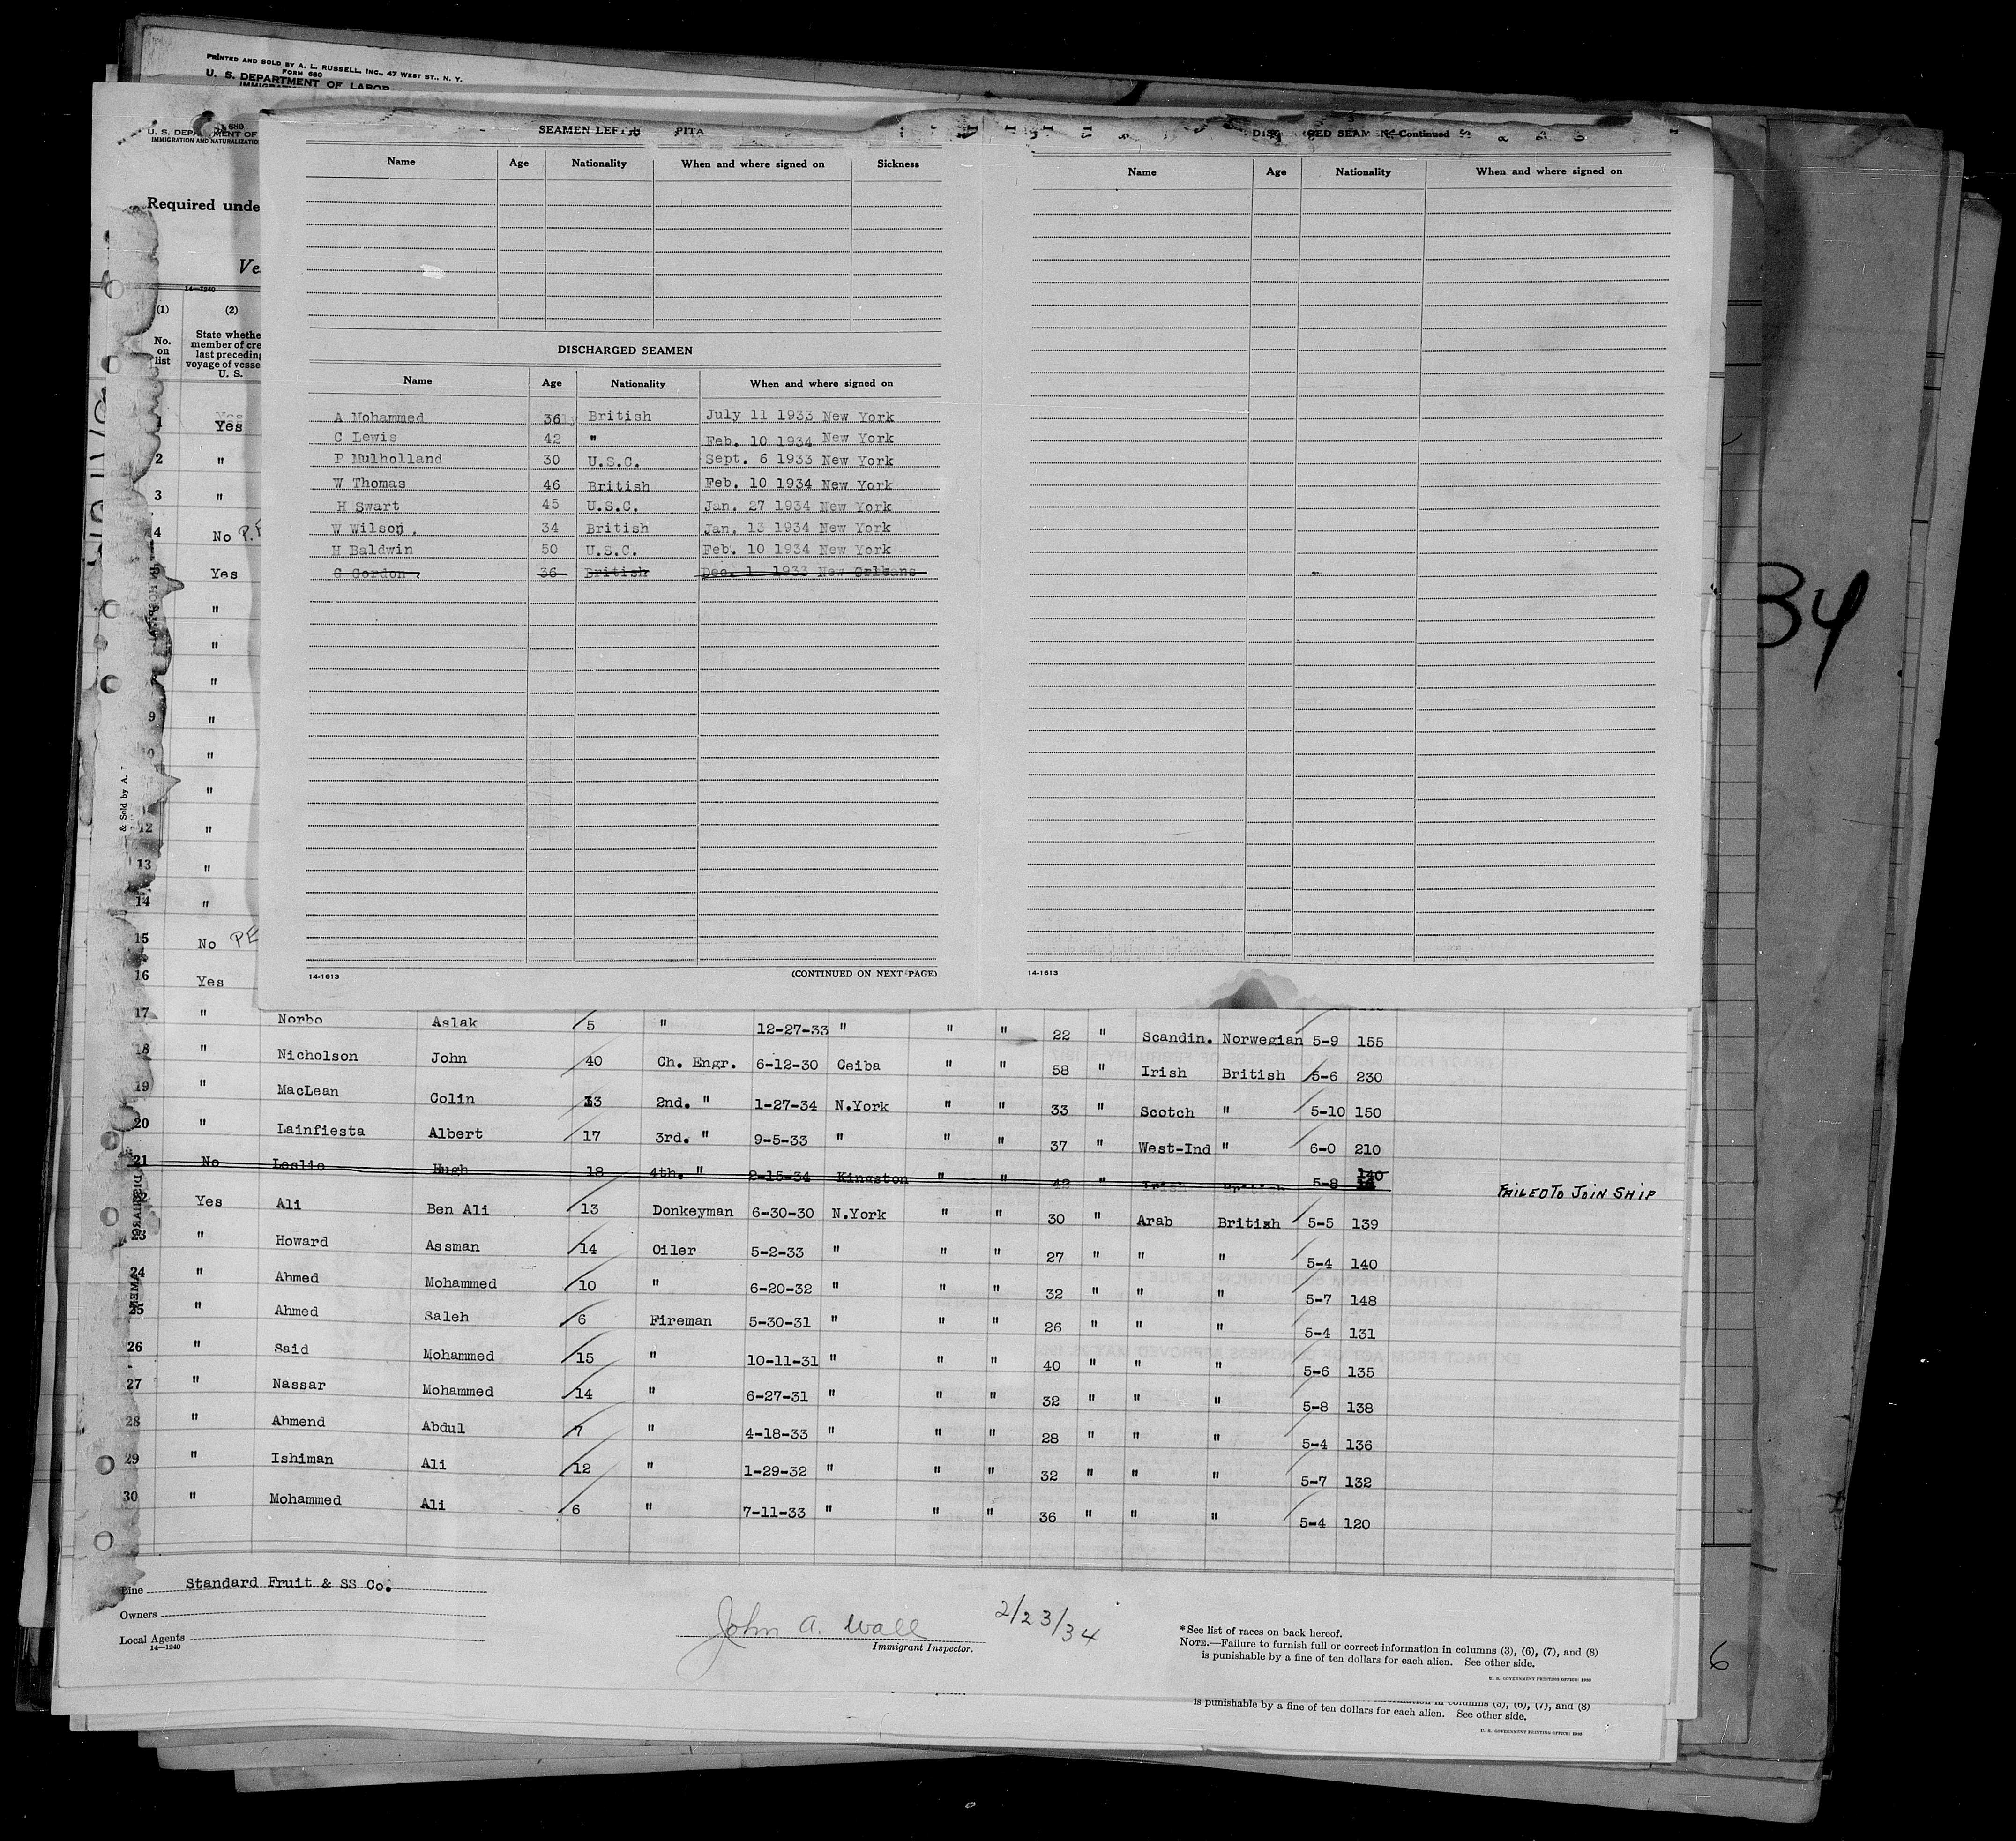 PRINTED AND SOLD BY A. L. RUSSELL, INC., 47 WEST ST., N. Y.
FORM 680
U. S. DEPARTMENT OF LABOR
680
U. S. DEPARTMENT OF
IMMIGRATION AND NATURALIZATIO
Required unde
Ve
14-1240
(1) (2)
No. on list
State whethe
member of cre
last preceding
voyage of vesse
U. S.
SEAMEN LEFT
PITA
Name Age Nationality When and where signed on Sickness
DISCHARGED SEAMEN
Name Age Nationality When and where signed on
A Mohammed 36 British July 11 1933 New York
C Lewis 42 " Feb. 10 1934 New York
P Mulholland 30 U.S.C. Sept. 6 1933 New York
W Thomas 46 British Feb. 10 1934 New York
H Swart 45 U.S.C. Jan. 27 1934 New York
W Wilson. 34 British Jan. 13 1934 New York
H Baldwin 50 U.S.C. Feb. 10 1934 New York
G Gordon 36 British Dec. 1 1933 New Orleans
14-1613 (CONTINUED ON NEXT PAGE)
DISCHARGED SEAMEN—Continued
Name Age Nationality When and where signed on
14-1613
34
1 Yes
2 "
3 "
4 No P.E
5 Yes
"
"
"
9 "
"
"
12 "
13 "
14 "
15 No PE
16 Yes
17 " Norbo Aslak 5 " 12-27-33 " " " 22 " Scandin. Norwegian 5-9 155
18 " Nicholson John 40 Ch. Engr. 6-12-30 Ceiba " " 58 " Irish British 5-6 230
19 " MacLean Colin 13 2nd. " 1-27-34 N.York " " 33 " Scotch " 5-10 150
20 " Lainfiesta Albert 17 3rd. " 9-5-33 " " " 37 " West-Ind " 6-0 210
21 No Leslie Hugh 18 4th. " 2-15-34 Kingston " " 42 " Irish British 5-8 140 FAILED TO JOIN SHIP
22 Yes Ali Ben Ali 13 Donkeyman 6-30-30 N.York " " 30 " Arab British 5-5 139
23 " Howard Assman 14 Oiler 5-2-33 " " " 27 " " " 5-4 140
24 " Ahmed Mohammed 10 " 6-20-32 " " " 32 " " " 5-7 148
25 " Ahmed Saleh 6 Fireman 5-30-31 " " " 26 " " " 5-4 131
26 " Said Mohammed 15 " 10-11-31 " " " 40 " " " 5-6 135
27 " Nassar Mohammed 14 " 6-27-31 " " " 32 " " " 5-8 138
28 " Ahmend Abdul 7 " 4-18-33 " " " 28 " " " 5-4 136
29 " Ishiman Ali 12 " 1-29-32 " " " 32 " " " 5-7 132
30 " Mohammed Ali 6 " 7-11-33 " " " 36 " " " 5-4 120
& Sold by A.
Line Standard Fruit & SS Co.
Owners
Local Agents
14-1240
John A. Wall 2/23/34
Immigrant Inspector.
*See list of races on back hereof.
NOTE.—Failure to furnish full or correct information in columns (3), (6), (7), and (8)
is punishable by a fine of ten dollars for each alien. See other side.
U. S. GOVERNMENT PRINTING OFFICE: 1933
6
is punishable by a fine of ten dollars for each alien. See other side.
U. S. GOVERNMENT PRINTING OFFICE: 1933